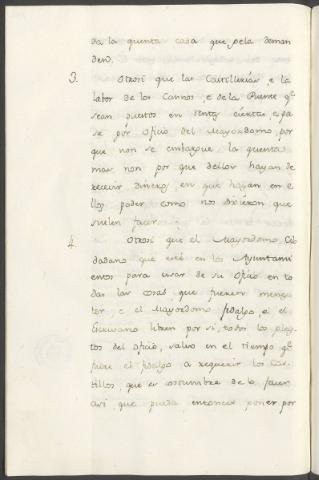 da la quenta cada que gela deman
den.
3. Otrosi que las Cavallerias, e la
labor de los Cannos, e de la Puente q.e
sean puestos en renta cierta, e pa
se por oficio del Mayordomo, por
que non se embargue la quenta
mas non por que dellos hayan de
recevir dineros, en que hayan en e
llos poder como nos dixieron que
suelen facer.
4. Otrosi que el Mayordomo Cib
dadano que esté en los Ayuntami
entos para usar de su oficio en to
das las cosas que fueren menes
ter, e el Mayordomo fidalgo, e el
Escrivano libren por si, todos los pley
tos del oficio, salvo en el tiempo q.e
fuere el fidalgo a requerir los Cas
tillos, que es costumbre de lo facer
asi, que pueda entonces poner por